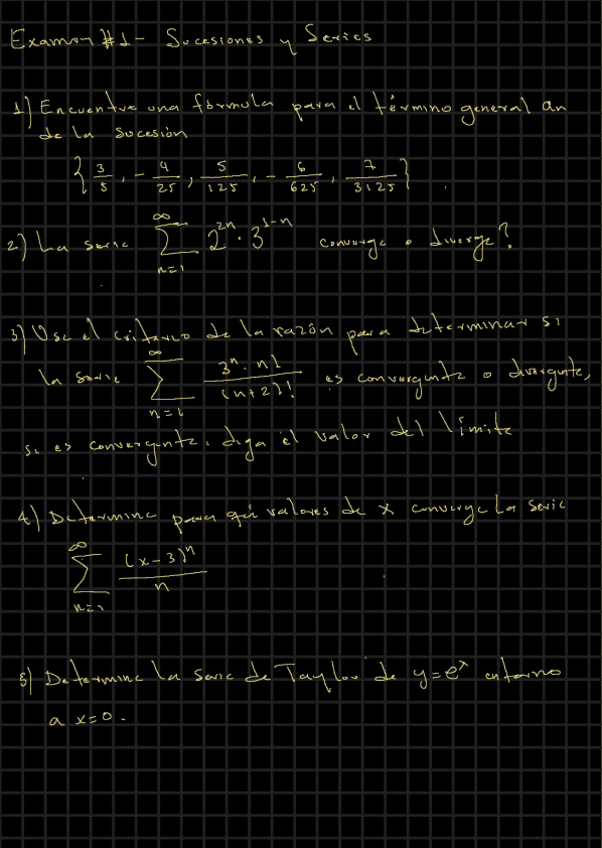 Examen #1 - Sucesiones y Series
1) Encuentre una fórmula para el término general an
de la sucesión
{ 3/5 , - 4/25 , 5/125 , - 6/625 , 7/3125 }
2) La serie ∑_{n=1}^{∞} 2^{2n} · 3^{1-n} converge o diverge?
3) Use el criterio de la razón para determinar si
la serie ∑_{n=1}^{∞} 3^n · n! / (n+2)! es convergente o divergente,
si es convergente, diga el valor del límite
4) Determine para qué valores de x converge la serie
∑_{n=1}^{∞} (x-3)^n / n
5) Determine la serie de Taylor de y=e^x entorno
a x=0.